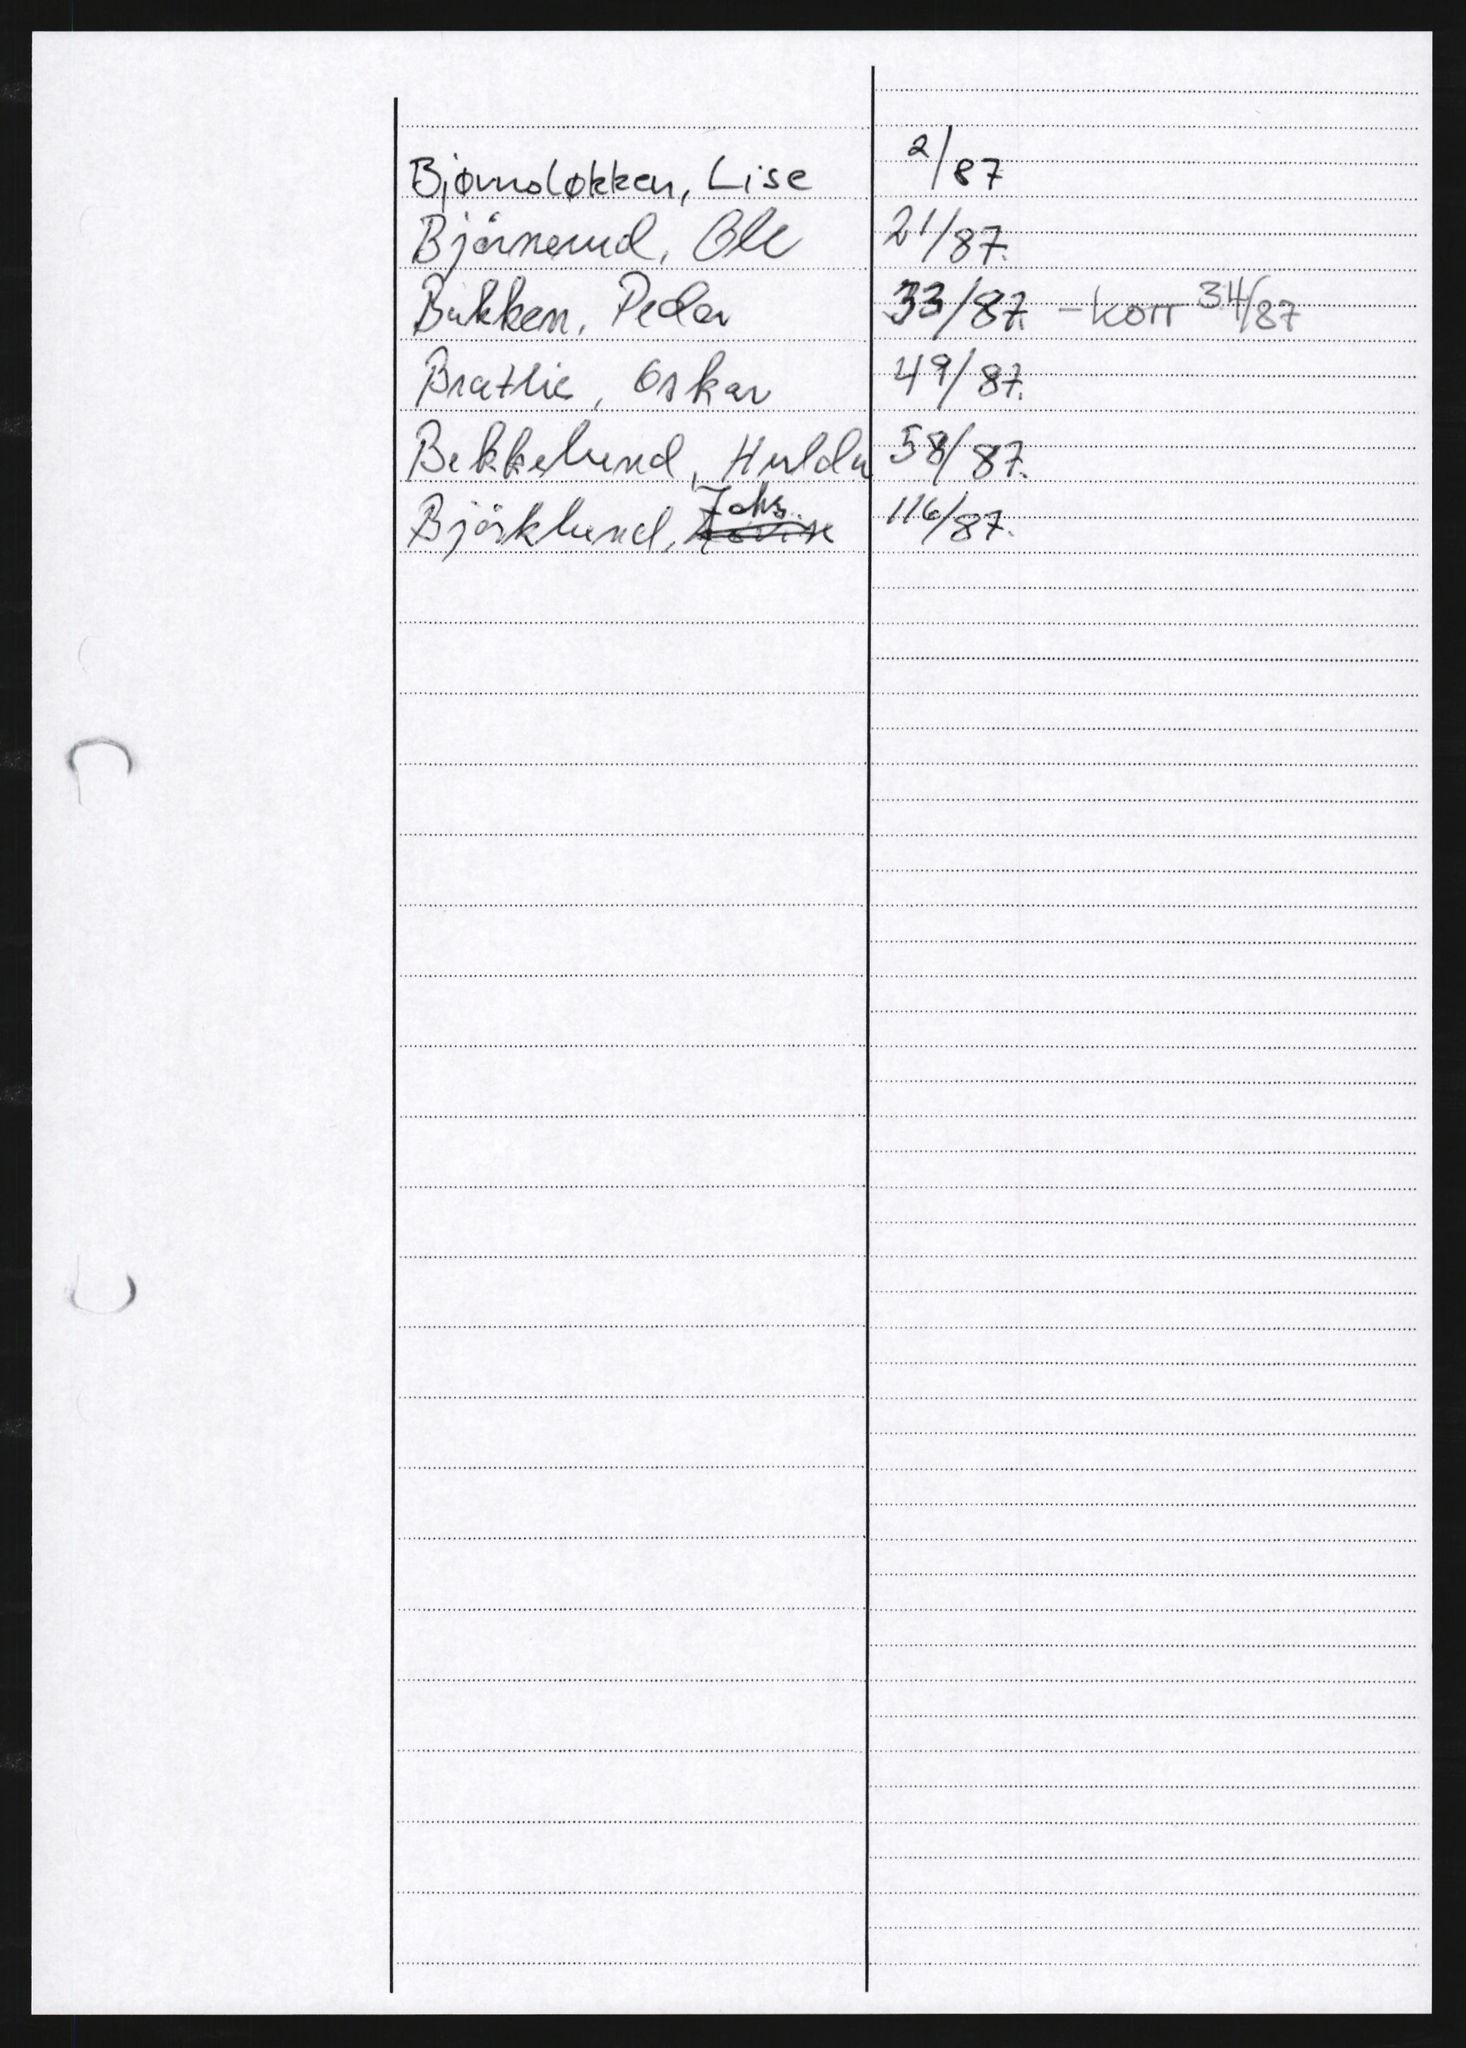 Bjørnsløkken, Lise 2/87
Bjørnerud, Ole 21/87.
Bakken, Peder 33/87. - korr 34/87
Bratlie, Oskar 49/87.
Bekkelund, Hulda 58/87.
Bjørklund, Johs. 116/87.